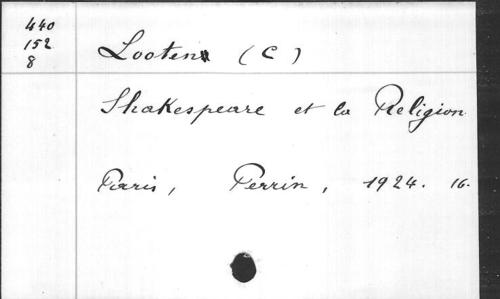 440
152
8
Looten (C)
Shakespeare et la Religion
Paris, Perrin, 1924. 16.